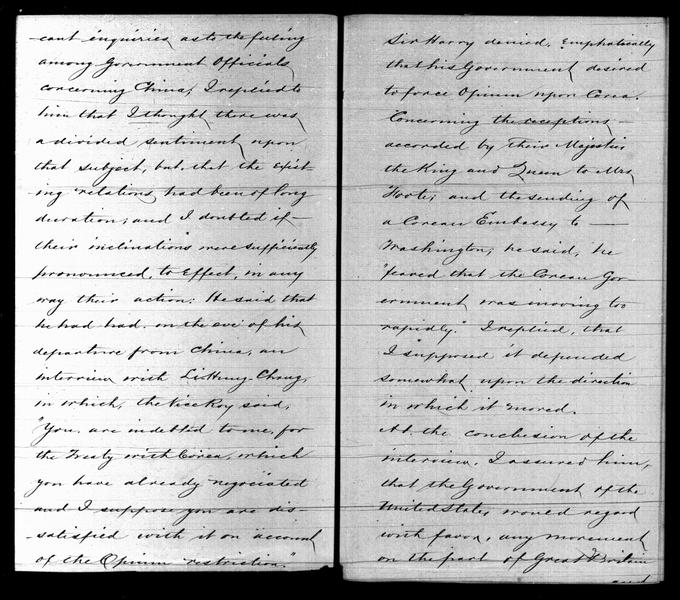 cant enquiries, as to the feeling
among Government Officials
concerning China, I replied to
him that I thought there was
a divided sentiment upon
that subject, but, that the exist-
ing relations, had been of long
duration; and I doubted if
their inclinations were sufficiently
pronounced, to effect, in any
way their action: He said that
he had had, on the eve of his
departure from China, an
interview with Li Hung-Chang,
in which, the Vice Roy said,
"You are indebted to me, for
the Treaty with Corea, which
you have already negociated
and I suppose you are dis-
satisfied with it on account
of the Opium restriction."
Sir Harry denied, emphatically
that his Government desired
to force Opium upon Corea.
Concerning the receptions
accorded by Their Majesties
the King and Queen to Mrs
Foote; and the sending of
a Corean Embassy to
Washington; he said, he
"feared that the Corean Gov-
ernment was moving too
rapidly." I replied, that
I supposed it depended
somewhat, upon the direction
in which it moved.
At the conclusion of the
interview, I assured him,
that the Government of the
United States would regard
with favor, any movement
on the part of Great Britain
and